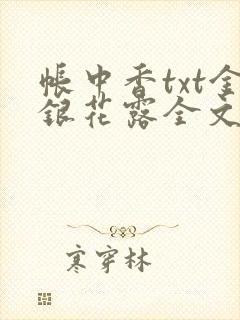 帐中香txt金
银花露全文
寒穿林